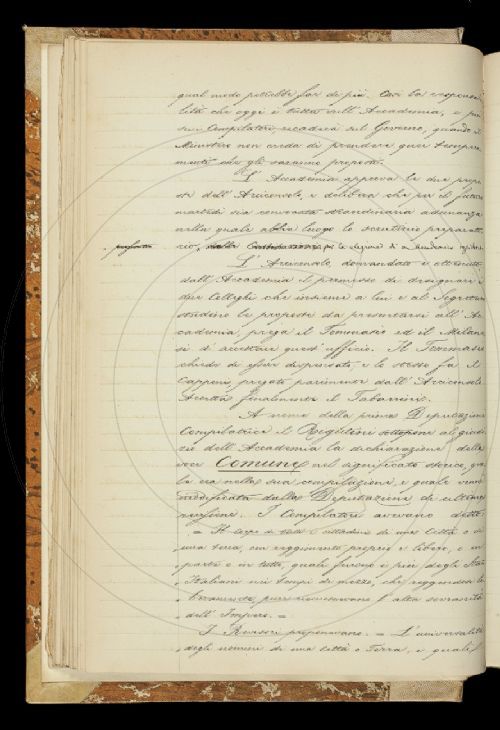 qual modo potrebbe far di più. Così la responsabi
lità che oggi è tutta sull'Accademia, e pei
suoi Compilatori, ricadrà sul Governo, quando il
Ministro non creda di prendere quei tempera
menti che gli saranno proposti.
L'Accademia approva le due propo
ste dell'Arciconsolo, e delibera che per il futuro
martedì sia convocata straordinaria adunanza
nella quale abbia luogo lo scrutinio preparato
rio, per le elezioni di
L'Arciconsolo, domandato e ottenuto
dall'Accademia il permesso di designare i
due Colleghi che insieme a lui e al Segretario
studino le proposte da presentarsi all'Ac
cademia, prega il Tommasèo ed il Milane
si d'accettare quest'ufficio. Il Tommasèo
chiede di esser dispensato, e lo stesso fa il
Capponi, pregato parimente dall'Arciconsolo
Accetta finalmente il Tabarrini.
A nome della prima Deputazione
Compilatrice il Rigutini sottopone al giudi
zio dell'Accademia la dichiarazione della
voce Comune nel significato storico, qua
la era nella sua compilazione, e quale venne
modificata dalla Deputazione di ultima
revisione. I Compilatori avevano detto:
= Il corpo di tutti i cittadini di una Città o di
una terra, con reggimento proprio e libero, o in
parte o in tutto, quale furono i più degli Stati
Italiani nei tempi di mezzo, che reggendosi li
beramente, pure riconoscevano l'alta sovranità
dell'Impero. =
I Revisori proponevano. = L'universalità
degli uomini di una Città o Terra, e quale